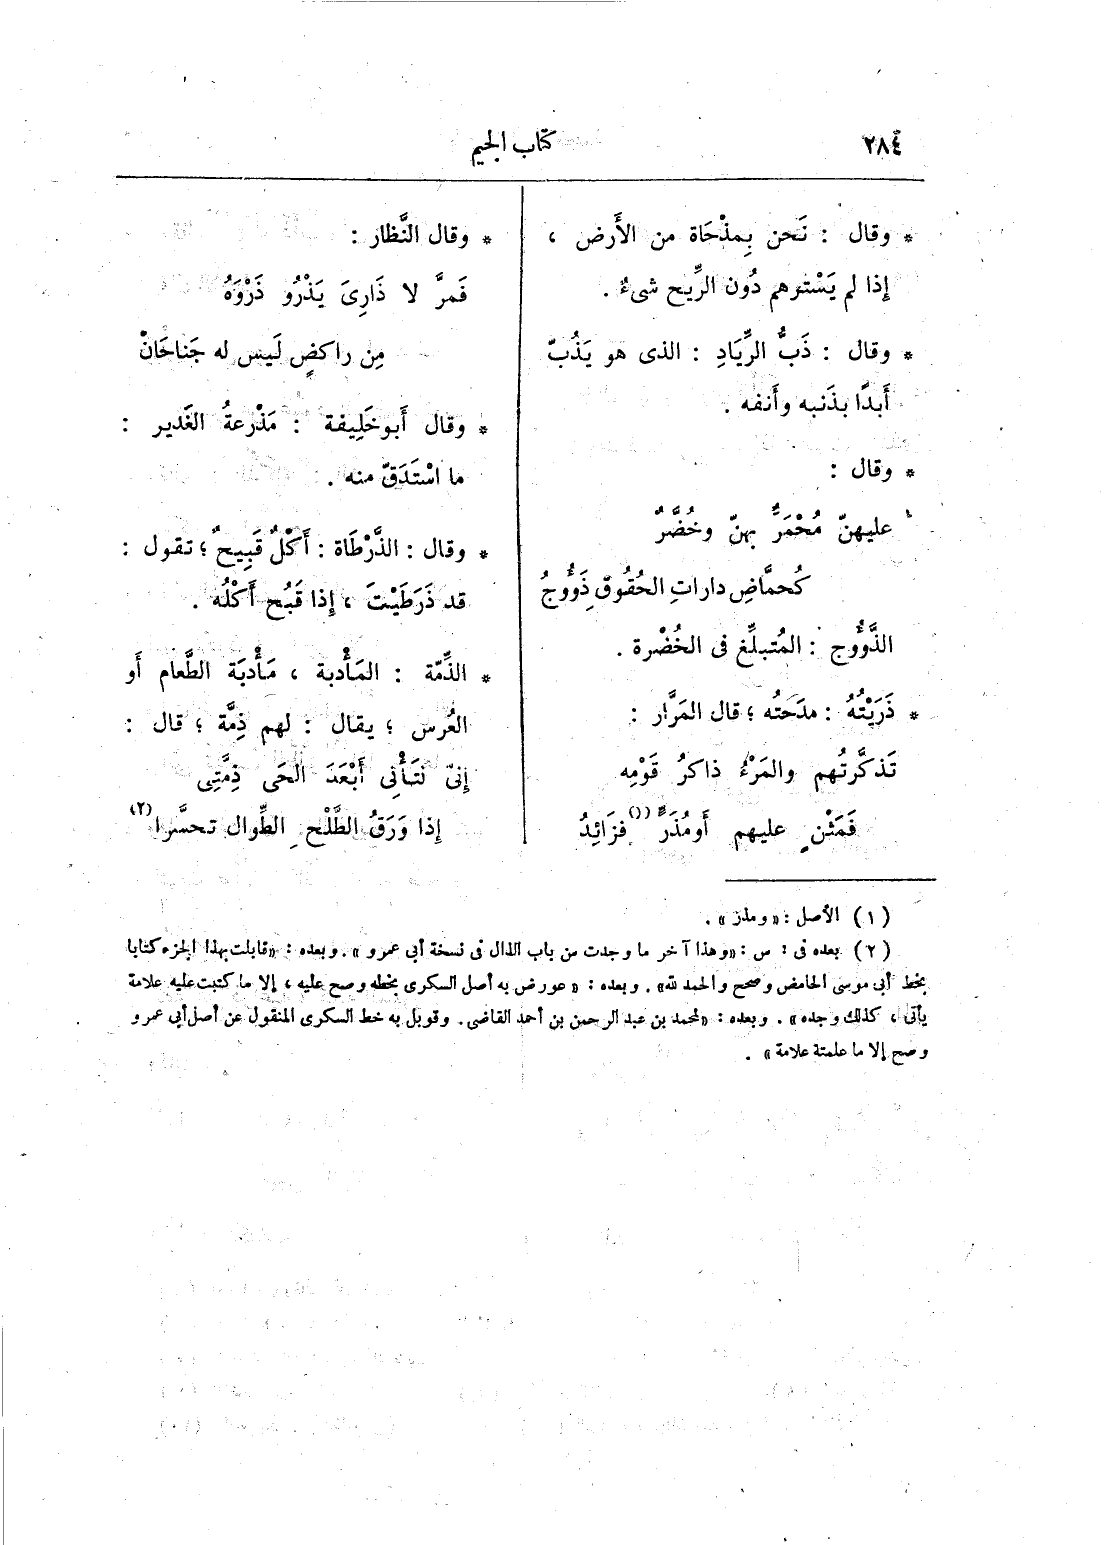 ٢٨٤
كتاب الجيم
* وقال : نَحن بِمذْحَاة من الأَرض ،
إِذا لم يَسْترهم دُون الرِّيح شىءٌ .
* وقال : ذَبُّ الرِّيَادِ : الذى هو يَذُبّ
أَبدًا بذَنبه وأَنفه .
* وقال :
عليهنّ مُحْمَرٌّ بهنّ وخُضَّرٌ
كَحمَّاضِ داراتِ الحُقُوق ذَوُّوجُ
الذَّوُّوج : المُتبلِّغ فى الخُضْرة .
* ذَرَيْتُهُ : مدَحتُه ؛ قال المَرَّار :
تَذكَّرتُهم والمَرْءُ ذاكرُ قَوْمِه
فَمَثْنٍ عليهم أَومُذَرٍّ (١) فزَائِدُ
* وقال النَّظار :
فَمرَّ لا ذَارِىَ يَذْرُو ذَرْوَهُ
مِن راكضٍ لَيس له جَناحَانْ
* وقال أَبوخَلِيفة : مَذْرعةُ الغَدير :
ما اسْتَدَقّ منه .
* وقال : الذَّرْطَاة : أَكْلٌ قَبِيحٌ ؛ تقول :
قد ذَرَطَيْتَ ، إِذا قَبُح أَكْلُه .
* الذِّمّة : المَأْدبة ، مَأْدبَة الطَّعام أَو
العُرس ؛ يقال : لهم ذِمَّة ؛ قال :
إِنىّ لَتَأْتِى أَبْعَدَ الحَى ذِمَّتِى
إِذا وَرَقُ الطَّلْحِ الطِّوال تحسَّرا (٢)
(١) الأصل : « ومذر » .
(٢) بعده فى : س : «وهذا آخر ما وجدت من باب الذال فى نسخة أبى عمرو » . وبعده : «قابلت بهذا الجزء كتابا
بخط أبى موسى الحامض وصحح والحمد لله» . وبعده : « عورض به أصل السكرى بخطه وصح عليه ، إلا ما كتبت عليه علامة
يأتى ، كذلك وجده » . وبعده : «لمحمد بن عبد الرحمن بن أحمد القاضى. وقوبل به خط السكرى المنقول عن أصل أبى عمرو
وصح إلا ما علمتة علامة » .